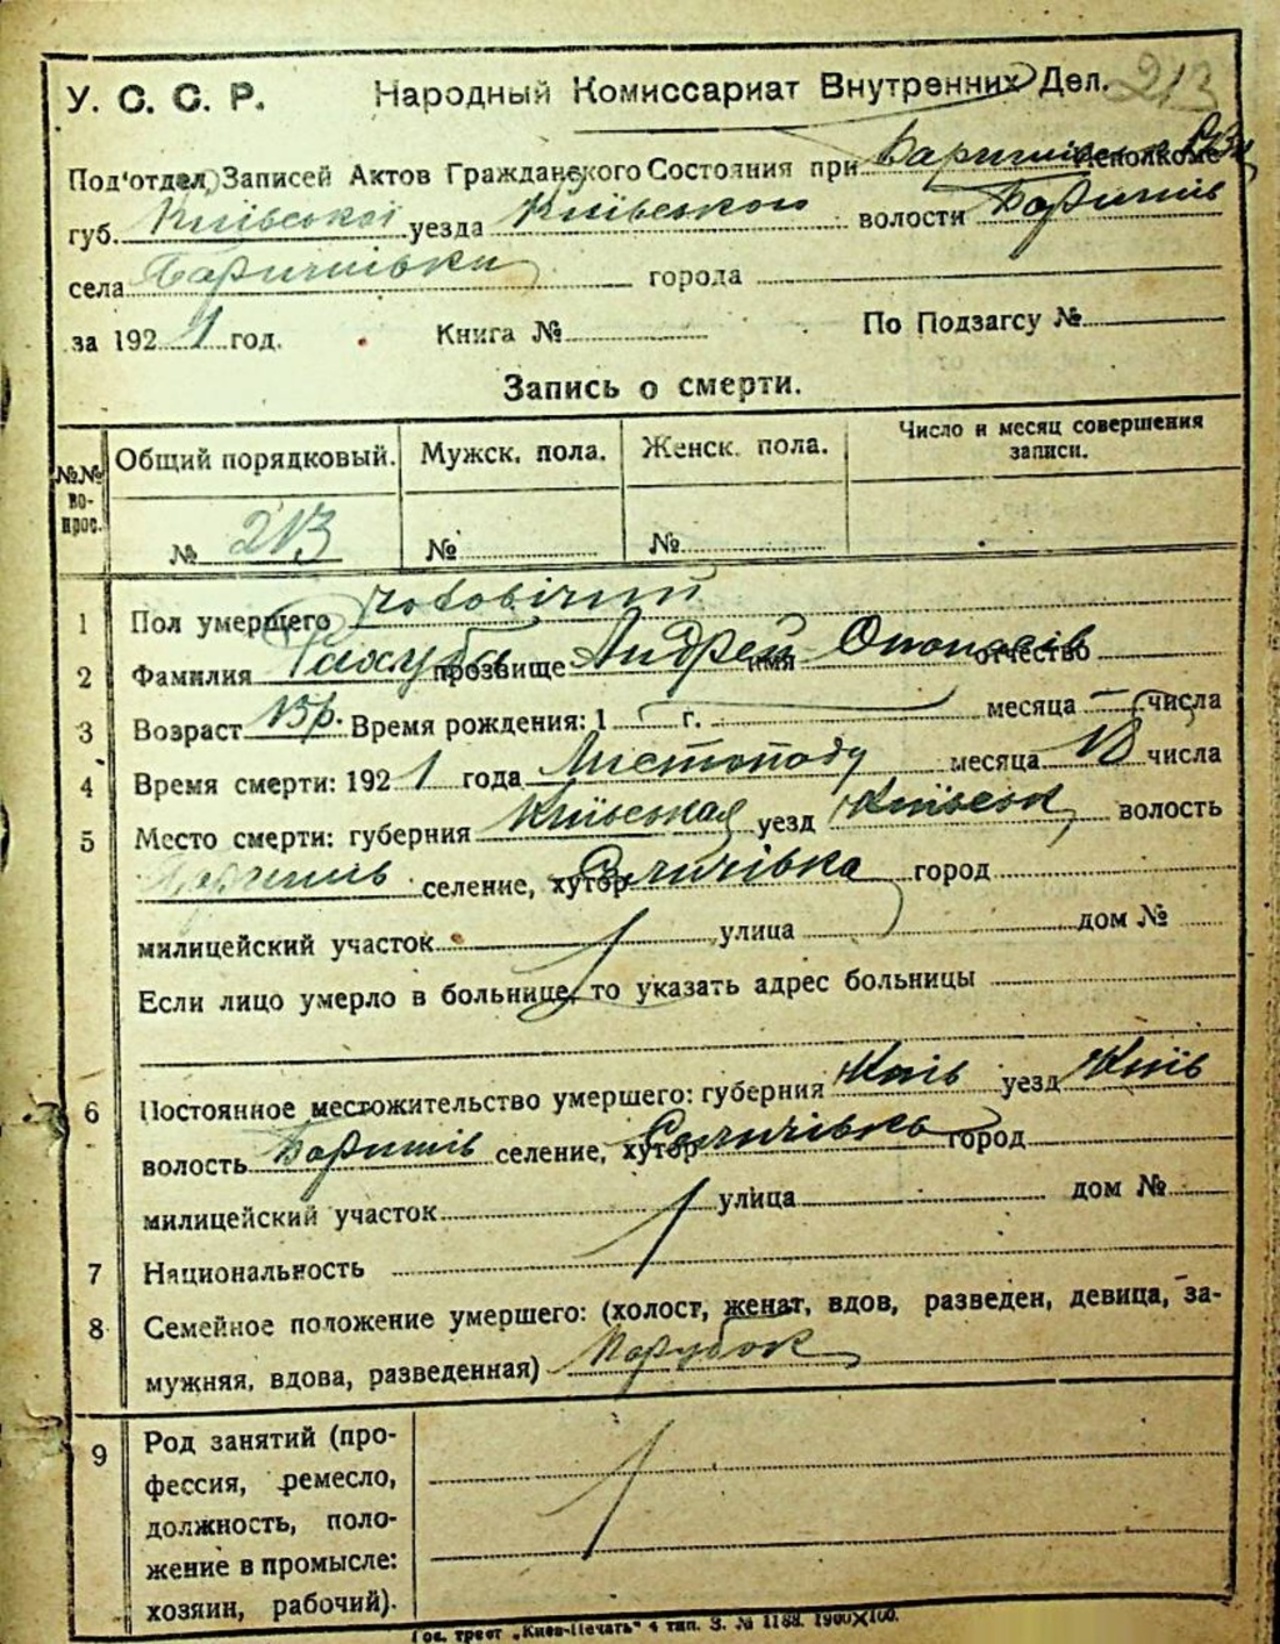 213
У. С. С. Р. Народный Комиссариат Внутренних Дел.
Под'отдел Записей Актов Гражданского Состояния при Исполкоме
губ. Київської уезда Київського волости Баришів
села Баришівки города
за 1921 год. Книга № По Подзагсу №
Запись о смерти.
№№ во-прос. Общий порядковый. Мужск. пола. Женск. пола. Число и месяц совершения записи.
№ 213 № №
1 Пол умершего чоловічий
2 Фамилия прозвище Андрей имя отчество
3 Возраст 13 р. Время рождения: 1 г. месяца числа
4 Время смерти: 1921 года Листопаду месяца числа
5 Место смерти: губерния Київская уезд Київськ волость
Баришів селение, хутор Селичівка город
милицейский участок улица дом №
Если лицо умерло в больнице, то указать адрес больницы
6 Постоянное местожительство умершего: губерния Київ уезд Київ
волость Баришів селение, хутор Селичівка город
милицейский участок улица дом №
7 Национальность
8 Семейное положение умершего: (холост, женат, вдов, разведен, девица, за-
мужняя, вдова, разведенная) Парубок
9 Род занятий (про-
фессия, ремесло,
должность, поло-
жение в промысле:
хозяин, рабочий).
Гос. трест „Киев-Печать“ 4 тип. З. № 1188. 1900×100.